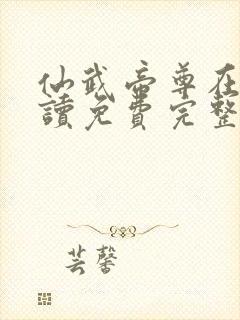 仙武帝尊在
讀免費完整
芸馨